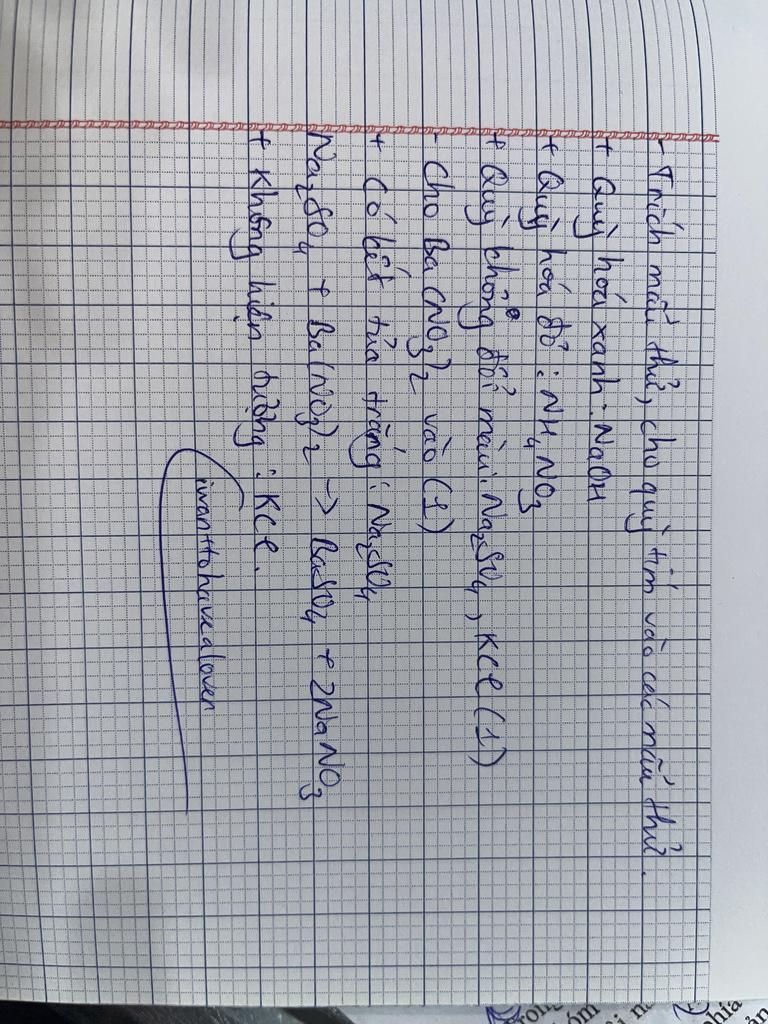 - Trích mẫu thử, cho quỳ tím vào các mẫu thử.
+ Quỳ hoá xanh: NaOH
+ Quỳ hoá đỏ: NH₄NO₃
+ Quỳ không đổi màu: Na₂SO₄, KCl (1)
- Cho Ba(NO₃)₂ vào (1)
+ Có kết tủa trắng: Na₂SO₄
Na₂SO₄ + Ba(NO₃)₂ → BaSO₄ + 2NaNO₃
+ Không hiện tượng: KCl.
iwanttohavealover